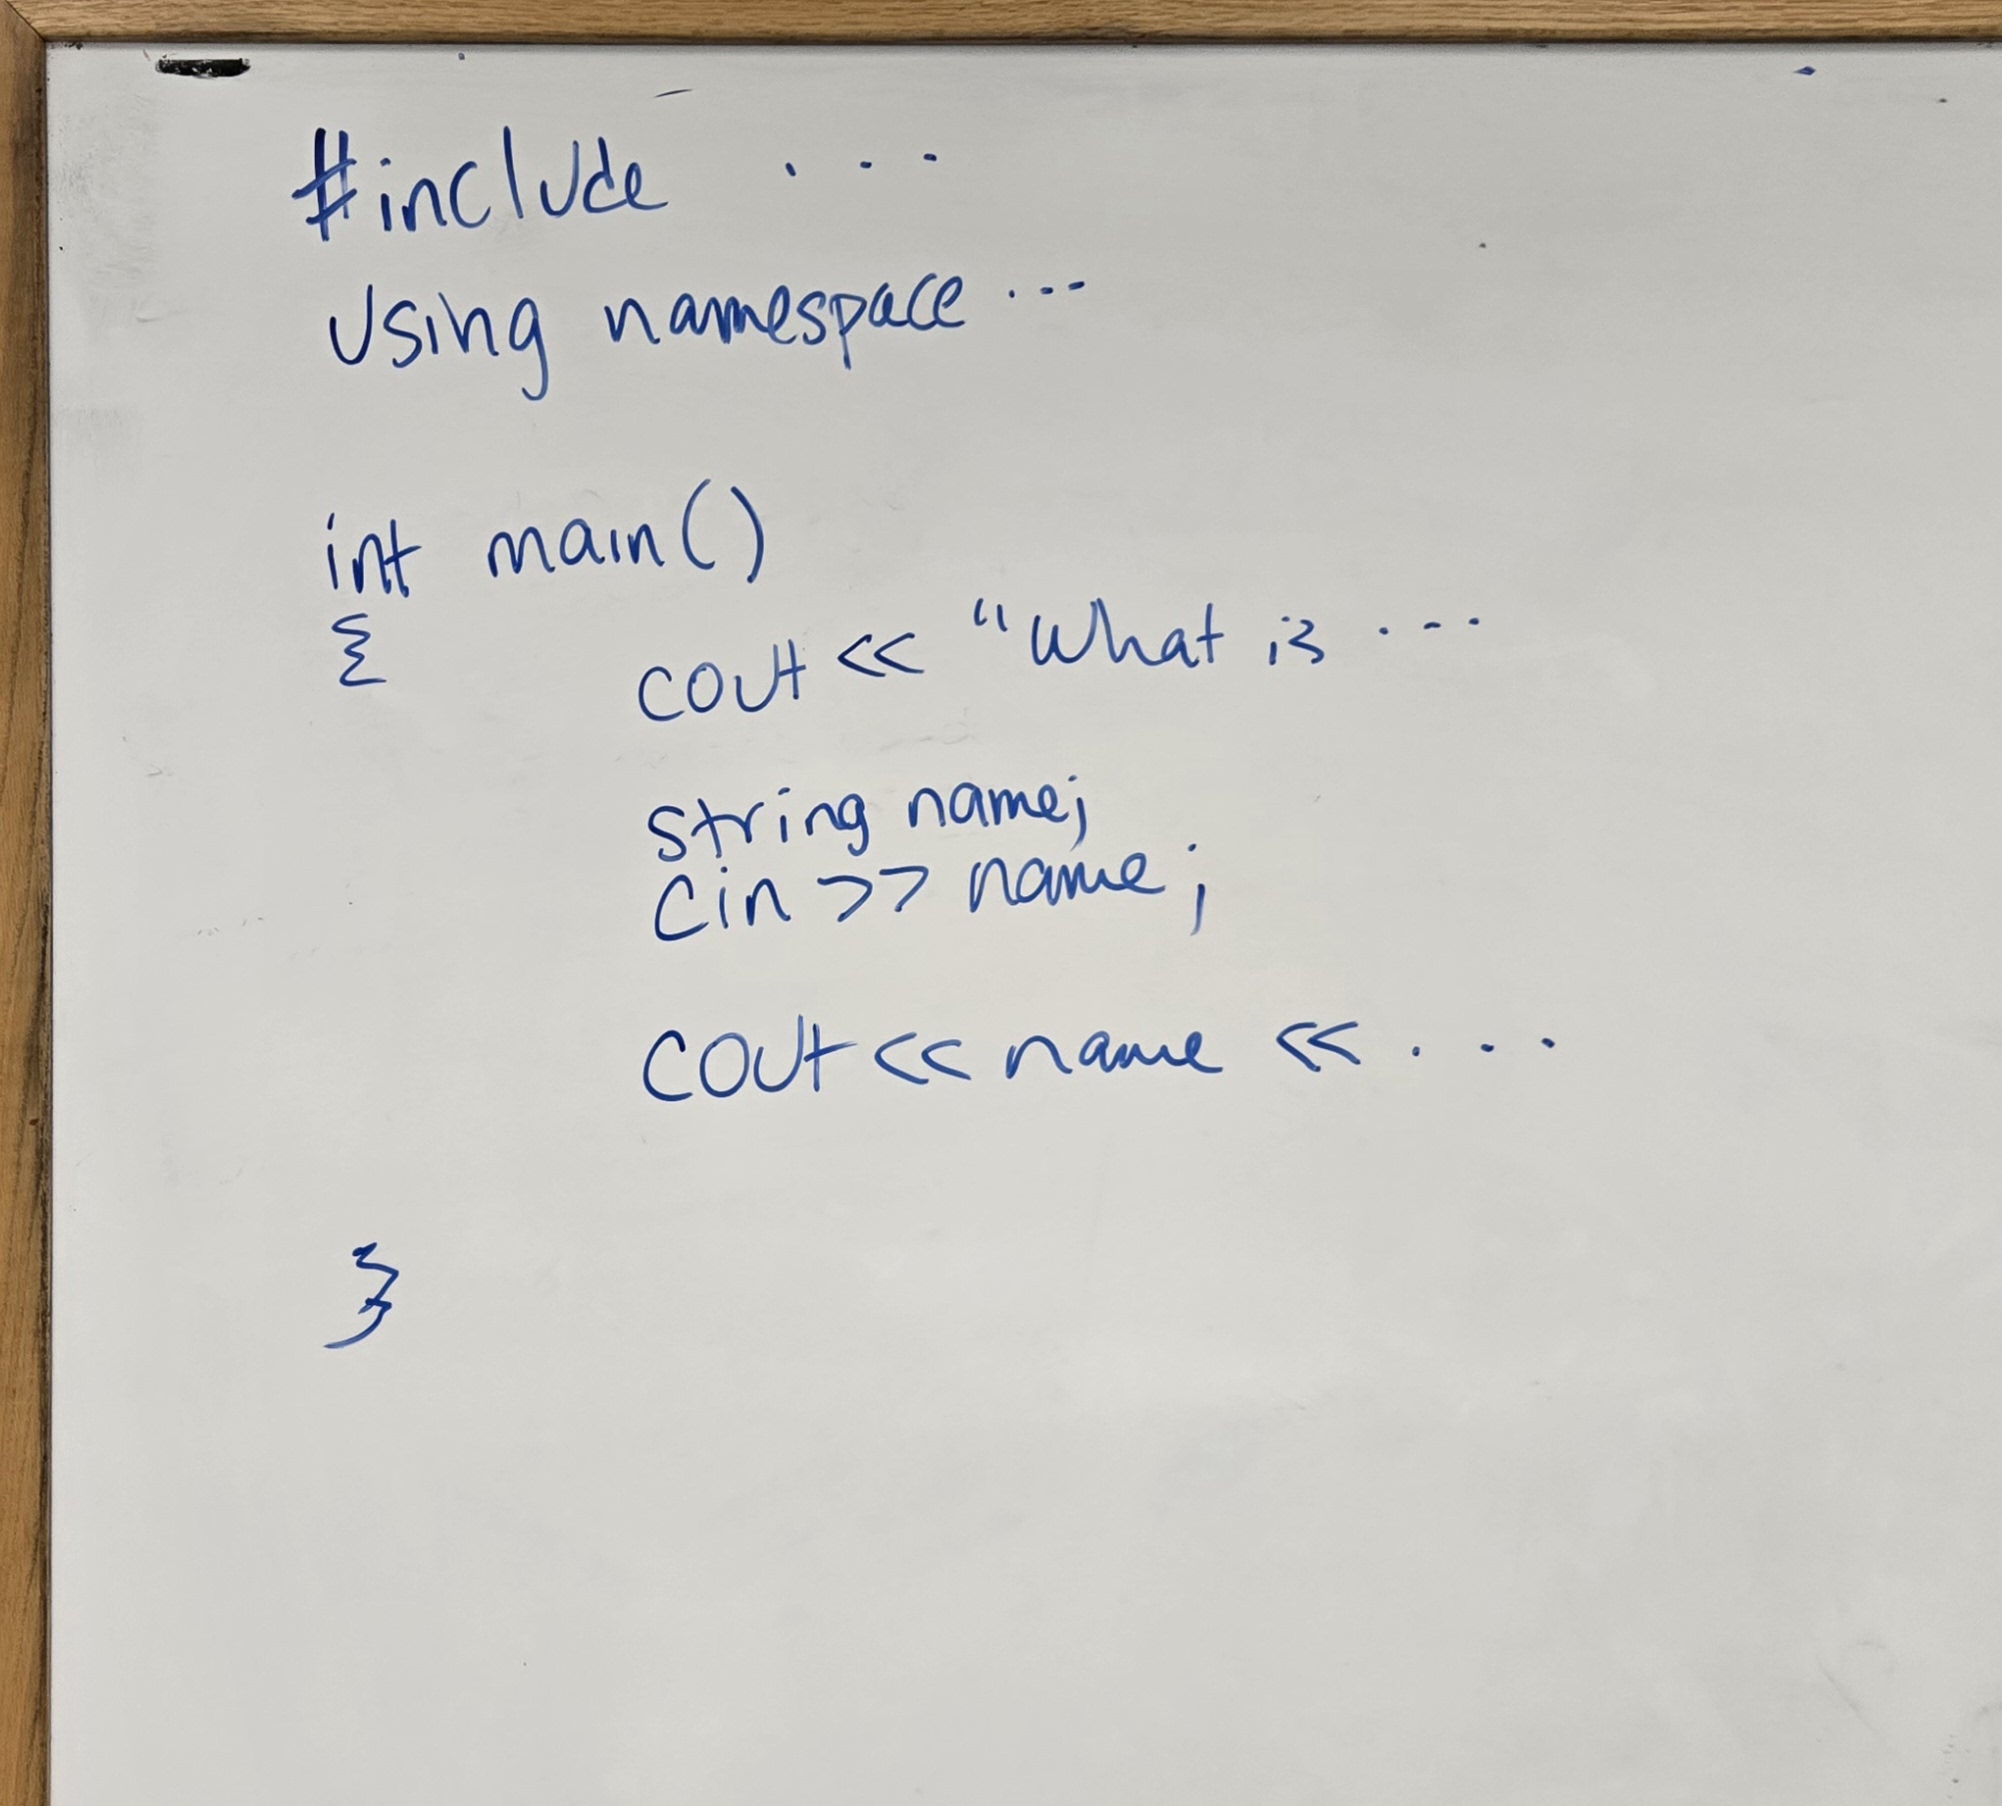 #include ...
using namespace ...
int main()
{ cout << "What is ...
string name;
cin >> name;
cout << name << ...
}